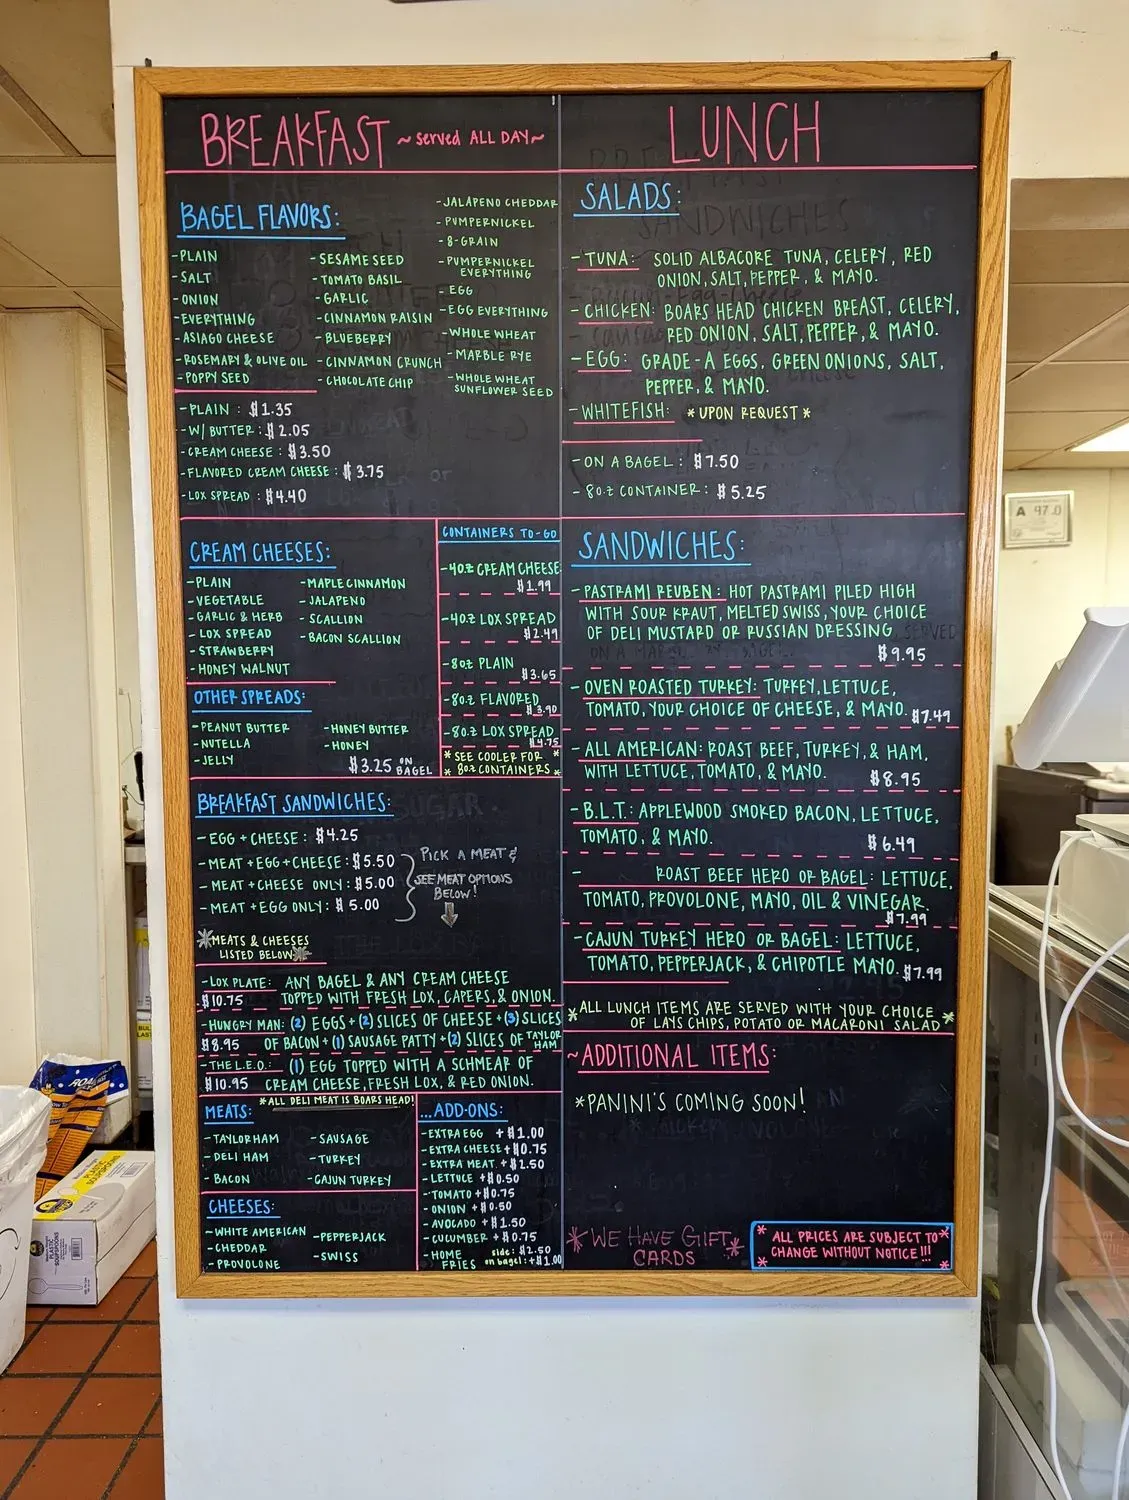 BREAKFAST ~served ALL DAY~
BAGEL FLAVORS:
-PLAIN
-SALT
-ONION
-EVERYTHING
-ASIAGO CHEESE
-ROSEMARY & OLIVE OIL
-POPPY SEED
-SESAME SEED
-TOMATO BASIL
-GARLIC
-CINNAMON RAISIN
-BLUEBERRY
-CINNAMON CRUNCH
-CHOCOLATE CHIP
-JALAPENO CHEDDAR
-PUMPERNICKEL
-8-GRAIN
-PUMPERNICKEL
EVERYTHING
-EGG
-EGG EVERYTHING
-WHOLE WHEAT
-MARBLE RYE
-WHOLE WHEAT
SUNFLOWER SEED
-PLAIN: $1.35
-W/ BUTTER: $2.05
-CREAM CHEESE: $3.50
-FLAVORED CREAM CHEESE: $3.75
-LOX SPREAD: $4.40
CREAM CHEESES:
-PLAIN
-VEGETABLE
-GARLIC & HERB
-LOX SPREAD
-STRAWBERRY
-HONEY WALNUT
-MAPLE CINNAMON
-JALAPENO
-SCALLION
-BACON SCALLION
OTHER SPREADS:
-PEANUT BUTTER
-NUTELLA
-JELLY
-HONEY BUTTER
-HONEY
$3.25 ON
BAGEL
CONTAINERS TO-GO
-4oz CREAM CHEESE
$1.99
-4oz LOX SPREAD
$2.49
-8oz PLAIN
$3.65
-8oz FLAVORED
$3.90
-8oz LOX SPREAD
$4.75
*SEE COOLER FOR*
*8oz CONTAINERS*
BREAKFAST SANDWICHES:
-EGG + CHEESE: $4.25
-MEAT+EGG+CHEESE: $5.50
-MEAT+CHEESE ONLY: $5.00
-MEAT+EGG ONLY: $5.00
PICK A MEAT &
SEE MEAT OPTIONS
BELOW!
*MEATS & CHEESES
LISTED BELOW*
-LOX PLATE: ANY BAGEL & ANY CREAM CHEESE
$10.75 TOPPED WITH FRESH LOX, CAPERS, & ONION.
-HUNGRY MAN: (2) EGGS+(2) SLICES OF CHEESE+(3) SLICES
$8.95 OF BACON+(1) SAUSAGE PATTY+(2) SLICES OF TAYLOR HAM
-THE L.E.O.: (1) EGG TOPPED WITH A SCHMEAR OF
$10.95 CREAM CHEESE, FRESH LOX, & RED ONION.
*ALL DELI MEAT IS BOARS HEAD!
MEATS:
-TAYLOR HAM
-DELI HAM
-BACON
-SAUSAGE
-TURKEY
-CAJUN TURKEY
CHEESES:
-WHITE AMERICAN
-CHEDDAR
-PROVOLONE
-PEPPERJACK
-SWISS
...ADD-ONS:
-EXTRA EGG +$1.00
-EXTRA CHEESE +$0.75
-EXTRA MEAT +$2.50
-LETTUCE +$0.50
-TOMATO +$0.75
-ONION +$0.50
-AVOCADO +$1.50
-CUCUMBER +$0.75
-HOME side: $2.50
FRIES on bagel: +$1.00
LUNCH
SALADS:
-TUNA: SOLID ALBACORE TUNA, CELERY, RED
ONION, SALT, PEPPER, & MAYO.
-CHICKEN: BOARS HEAD CHICKEN BREAST, CELERY,
RED ONION, SALT, PEPPER, & MAYO.
-EGG: GRADE-A EGGS, GREEN ONIONS, SALT,
PEPPER, & MAYO.
-WHITEFISH: *UPON REQUEST*
-ON A BAGEL: $7.50
-8oz CONTAINER: $5.25
SANDWICHES:
-PASTRAMI REUBEN: HOT PASTRAMI PILED HIGH
WITH SOUR KRAUT, MELTED SWISS, YOUR CHOICE
OF DELI MUSTARD OR RUSSIAN DRESSING
$9.95
-OVEN ROASTED TURKEY: TURKEY, LETTUCE,
TOMATO, YOUR CHOICE OF CHEESE, & MAYO. $7.49
-ALL AMERICAN: ROAST BEEF, TURKEY, & HAM,
WITH LETTUCE, TOMATO, & MAYO. $8.95
-B.L.T.: APPLEWOOD SMOKED BACON, LETTUCE,
TOMATO, & MAYO. $6.49
- ROAST BEEF HERO OR BAGEL: LETTUCE,
TOMATO, PROVOLONE, MAYO, OIL & VINEGAR.
$7.99
-CAJUN TURKEY HERO OR BAGEL: LETTUCE,
TOMATO, PEPPERJACK, & CHIPOTLE MAYO. $7.99
*ALL LUNCH ITEMS ARE SERVED WITH YOUR CHOICE
OF LAYS CHIPS, POTATO OR MACARONI SALAD*
~ADDITIONAL ITEMS:
*PANINI'S COMING SOON!
*WE HAVE GIFT*
CARDS
*ALL PRICES ARE SUBJECT TO*
*CHANGE WITHOUT NOTICE!!!*
A 97.0
PLASTIC
SOUPSPOONS